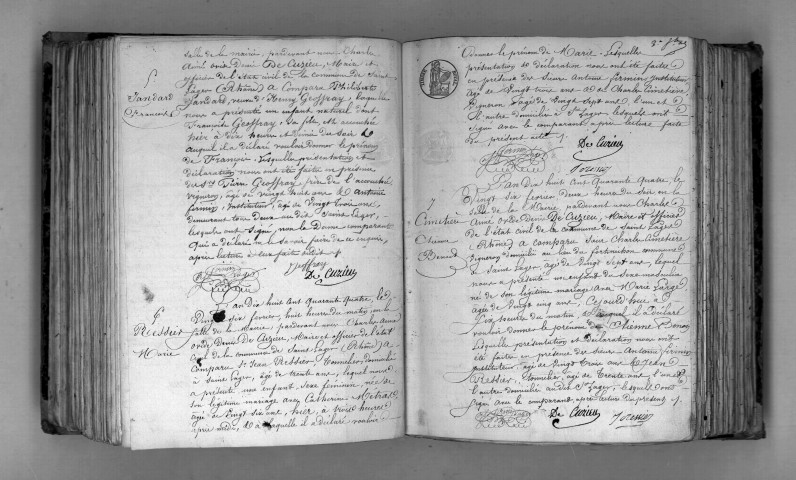 salle de la mairie, pardevant nous Charles
Aimé ovide Denis De Cuzieu, Maire et
officier de l'état civil de la commune de Saint
Lager (Rhône) A Comparu Philiberte
Jandard, veuve d'Henry Geoffray, laquelle
nous a présenté un enfant naturel dont
Geoffray, sa fille, est accouchée
hier à heure et demie du soir
auquel il a déclaré vouloir donner le prénom
de François. Lesquelles présentation et
déclaration nous ont été faites en présence
des Srs Geoffray, père de l'accouchée
vigneron, âgé de vingt huit ans & Antoine
Firmin, Instituteur, âgé de vingt trois ans
demeurant tous deux au dit Saint Lager,
lesquels ont signé, non la comparant
qui a déclaré ne savoir faire de ce enquis,
après lecture à eux faite
5
Jandard
François
Geoffray
De Cuzieu
6
Ressier
Marie
L'an Dix huit cent Quarante Quatre, le
Vingt six février, huit heures du matin, en la
salle de la Mairie, pardevant nous Charles Aimé
ovide Denis De Cuzieu, Maire et officier de l'état
civil de la commune de Saint Lager (Rhône) A
Comparu Sr Jean Ressier, Tonnelier, domicilié
à Saint Lager, âgé de trente ans, lequel nous
a présenté un enfant, sexe féminin, née de
son légitime mariage avec Catherine
âgée de vingt six ans, hier, à heures
après midi, & à laquelle il a déclaré vouloir
donner le prénom de Marie. Lesquelles
présentation & déclaration nous ont été faites
en présence des Sieurs Antoine Firmin, Instituteur
âgé de Vingt trois ans & Charles Cimetière
Vigneron, âgé de Vingt sept ans, l'un et
l'autre domiciliés à St Lager, lesquels ont
signé avec le comparant après lecture faite
du présent acte.
De Cuzieu
7
Cimetière
Etienne
Benoit
L'an dix huit cent Quarante Quatre, le
Vingt six février, deux heures du soir en la
salle de la Mairie pardevant nous Charles
Aimé ovide Denis De Cuzieu, Maire et officier
de l'état civil de la commune de Saint Lager
(Rhône) a comparu Sieur Charles Cimetière
Vigneron, domicilié au lieu de commune
de Saint Lager, âgé de Vingt sept ans, lequel
nous a présenté un enfant du sexe masculin
né de son légitime mariage avec Marie
âgée de Vingt cinq ans, à
heures du matin & auquel il a déclaré
vouloir donner le prénom de Etienne Benoit
Lesquelles présentation et déclaration nous ont
été faites en présence des Sieurs Antoine Firmin
instituteur, âgé de Vingt trois ans & Jean
Ressier, Tonnelier, âgé de Trente ans, l'un &
l'autre domiciliés audit St Lager, lesquels ont
signé avec le comparant, après lecture du présent.
De Cuzieu